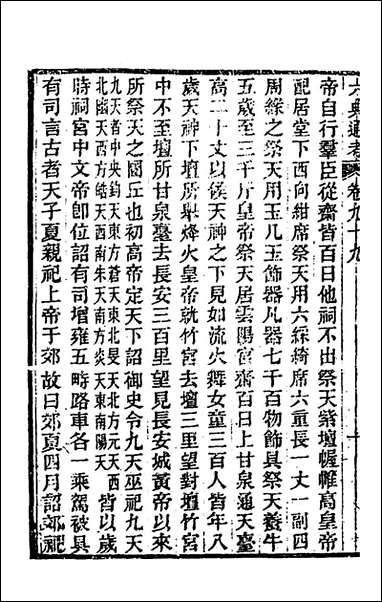 六典通考 卷九十九
帝自行羣臣從齋皆百日他祠不出祭天紫壇幄帷高皇帝
配居堂下西向紺席祭天用六綵綺席六重長一丈一副四
周緣之祭天用玉几玉飾器凡器七千百物飾具祭天養牛
五歲至三千斤皇帝祭天居雲陽宮齋百日上甘泉通天臺
高三十丈以侯天神之下見如流火舞女童三百人皆年八
歲天神下壇所舉烽火皇帝就竹宮去壇三里望對壇竹宮
中不至壇所甘泉臺去長安三百里望見長安城黃帝以來
所祭天之圜丘也初高帝定天下詔御史令九天巫祀九天
九天者中央鈞天東方蒼天東北旻天北方元天西
北幽天西方皓天西南朱天南方炎天東南陽天
皆以歲
時祠宮中文帝卽位詔有司壇雍五畤路車各一乘駕被具
有司言古者天子夏親祀上帝于郊故曰郊夏四月詔郊祀